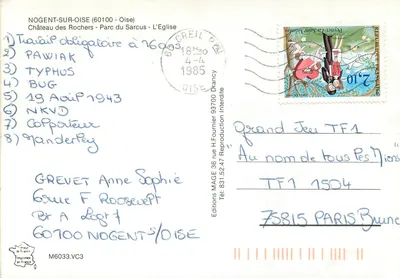 NOGENT-SUR-OISE (60100 - Oise)
Château des Rochers - Parc du Sarcus - L'Eglise
1) Travail obligatoire à 16 ans
2) PAWIAK
3) TYPHUS
4) BUG
5) 19 Août 1943
6) NKVD
7) Colporteur
8) Manderley
GREVET Anne Sophie
6 rue F Roosevelt
Bt A Logt 1
60100 NOGENT S/OISE
M6033.VC3
Editions MAGE 36 rue H.Fournier 93700 Drancy
Tél: 831.52.47 Reproduction Interdite
60 CREIL
18H30
4-4
1985
OISE
2,10
Grand Jeu TF1
"Au nom de tous les Miens"
TF1 1504
75815 PARIS Brune